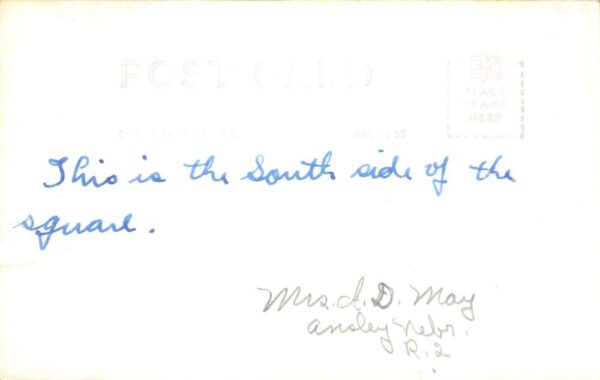 POST CARD
PLACE
STAMP
HERE
This is the South side of the
square.
Mrs. A. D. May
Ansley Nebr.
R. 2